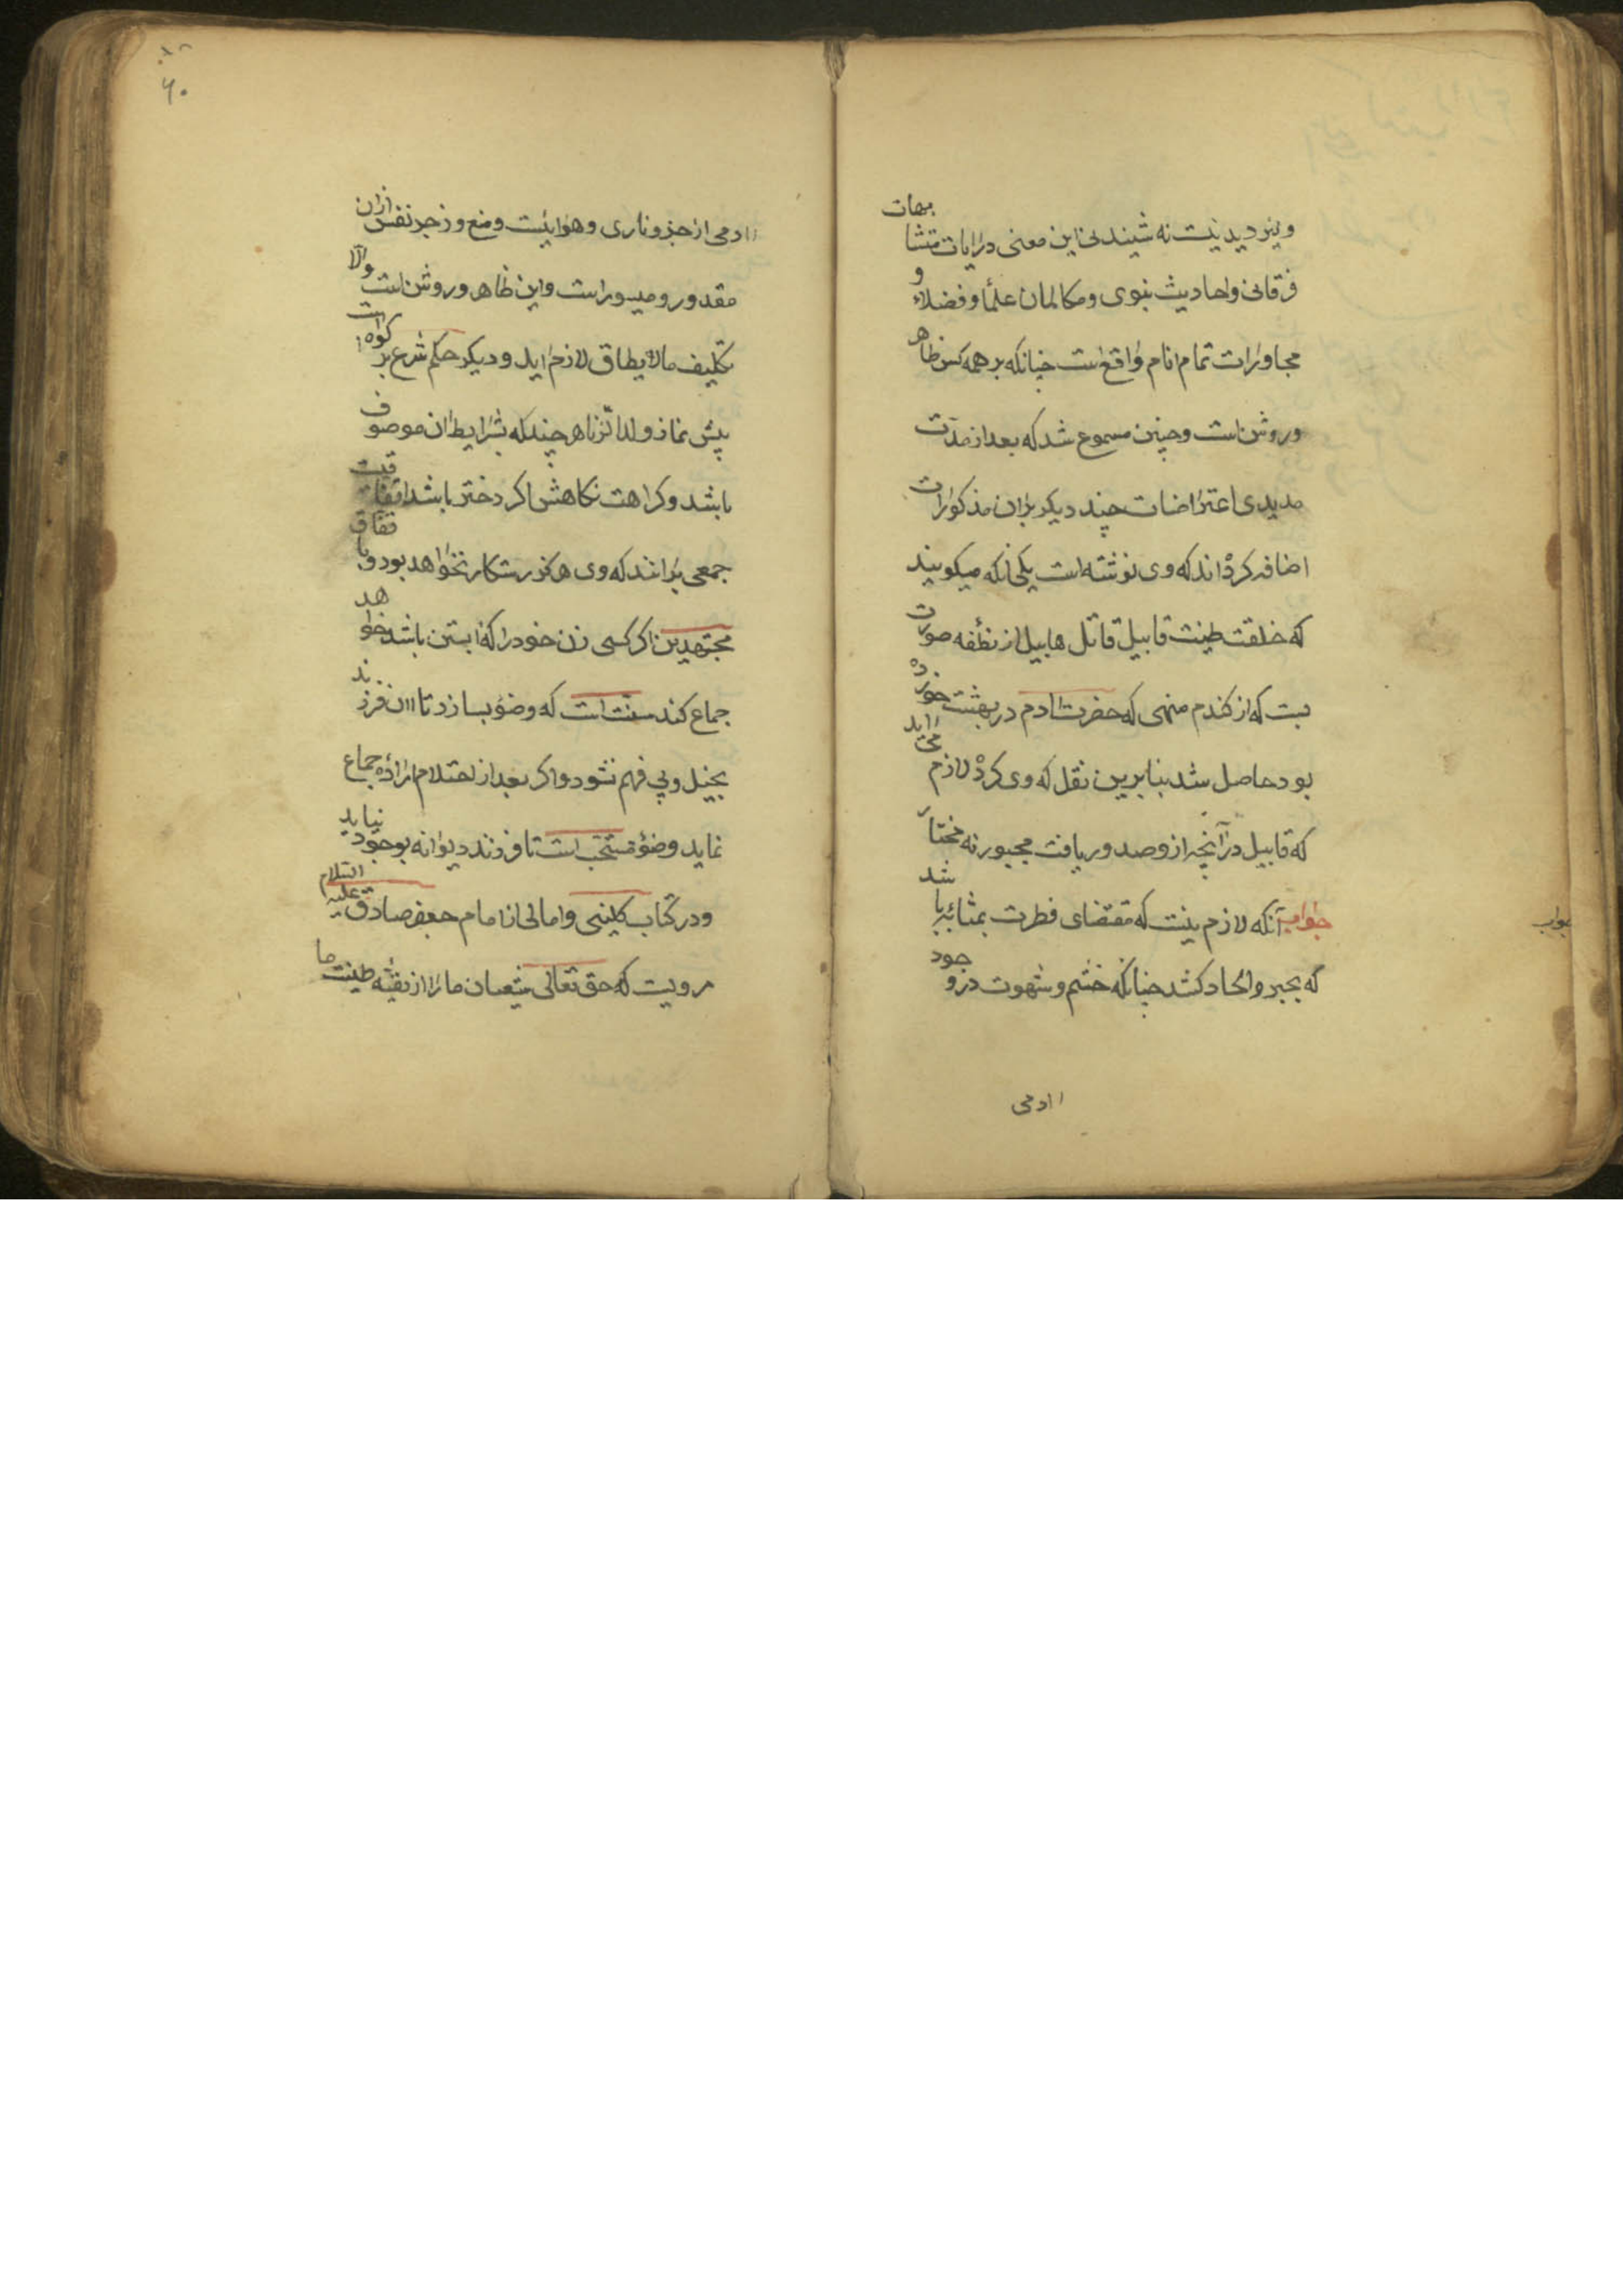 ونیز دید نیست نه شنیدنی این معنی در ایات متشابهات
فرقانی واحادیث نبوی ومکالمان علماً وفضلاء و
مجاورات تمام انام واقع است چنانکه بر همه کس ظاهر
وروشن است وچنین مسموع شد که بعد از مدت
مدیدی اعتراضات چند دیکر بران مذکورات
اضافه کرده اند که وی نوشته است یکی انکه میکویند
که خلقت طینت قابیل قاتل هابیل از نطفه صورت
بست که از کندم منهی که حضرت ادم در بهشت خورده
بود حاصل شد بنابرین نقل که وی کرده لازم می اید
که قابیل در آنچه از و صدور یافت مجبور نه مختار
جواب آنکه لازم نیست که مقتضای فطرت بمثابۀ باشد
که بجبر والحاد کشد چنانکه خشم وشهوت در وجود
ادمی
جواب
۶۰
ادمی از جزو ناری وهوائیست ومنع وزجر نفس ازان
مقدور ومیسور است واین ظاهر وروشن است والّا
تکلیف مالا یطاق لازم اید ودیکر حکم شرع بر کراهت
پیش نماز ولد الزنا هر چند که بشرایط ان موصوف
باشد وکراهت نکاهش اکر دختر باشد
جمعی برانند که وی هرکز رستکار نخواهد بود وبا تفاق
مجتهدین اکر کسی زن خود را که ابستن باشد خواهد
جماع کند سنت است که وضو بسازد تا ان فرزند
بخیل وبی فهم نشود واکر بعد از احتلام ارادۀ جماع
نماید وضو مستحب است تا فرزند دیوانه بوجود نیاید
ودر کتاب کلینی وامالی از امام جعفر صادق علیه السلام
مرویست که حق تعالی شیعیان ما را از بقیّه طینت ما